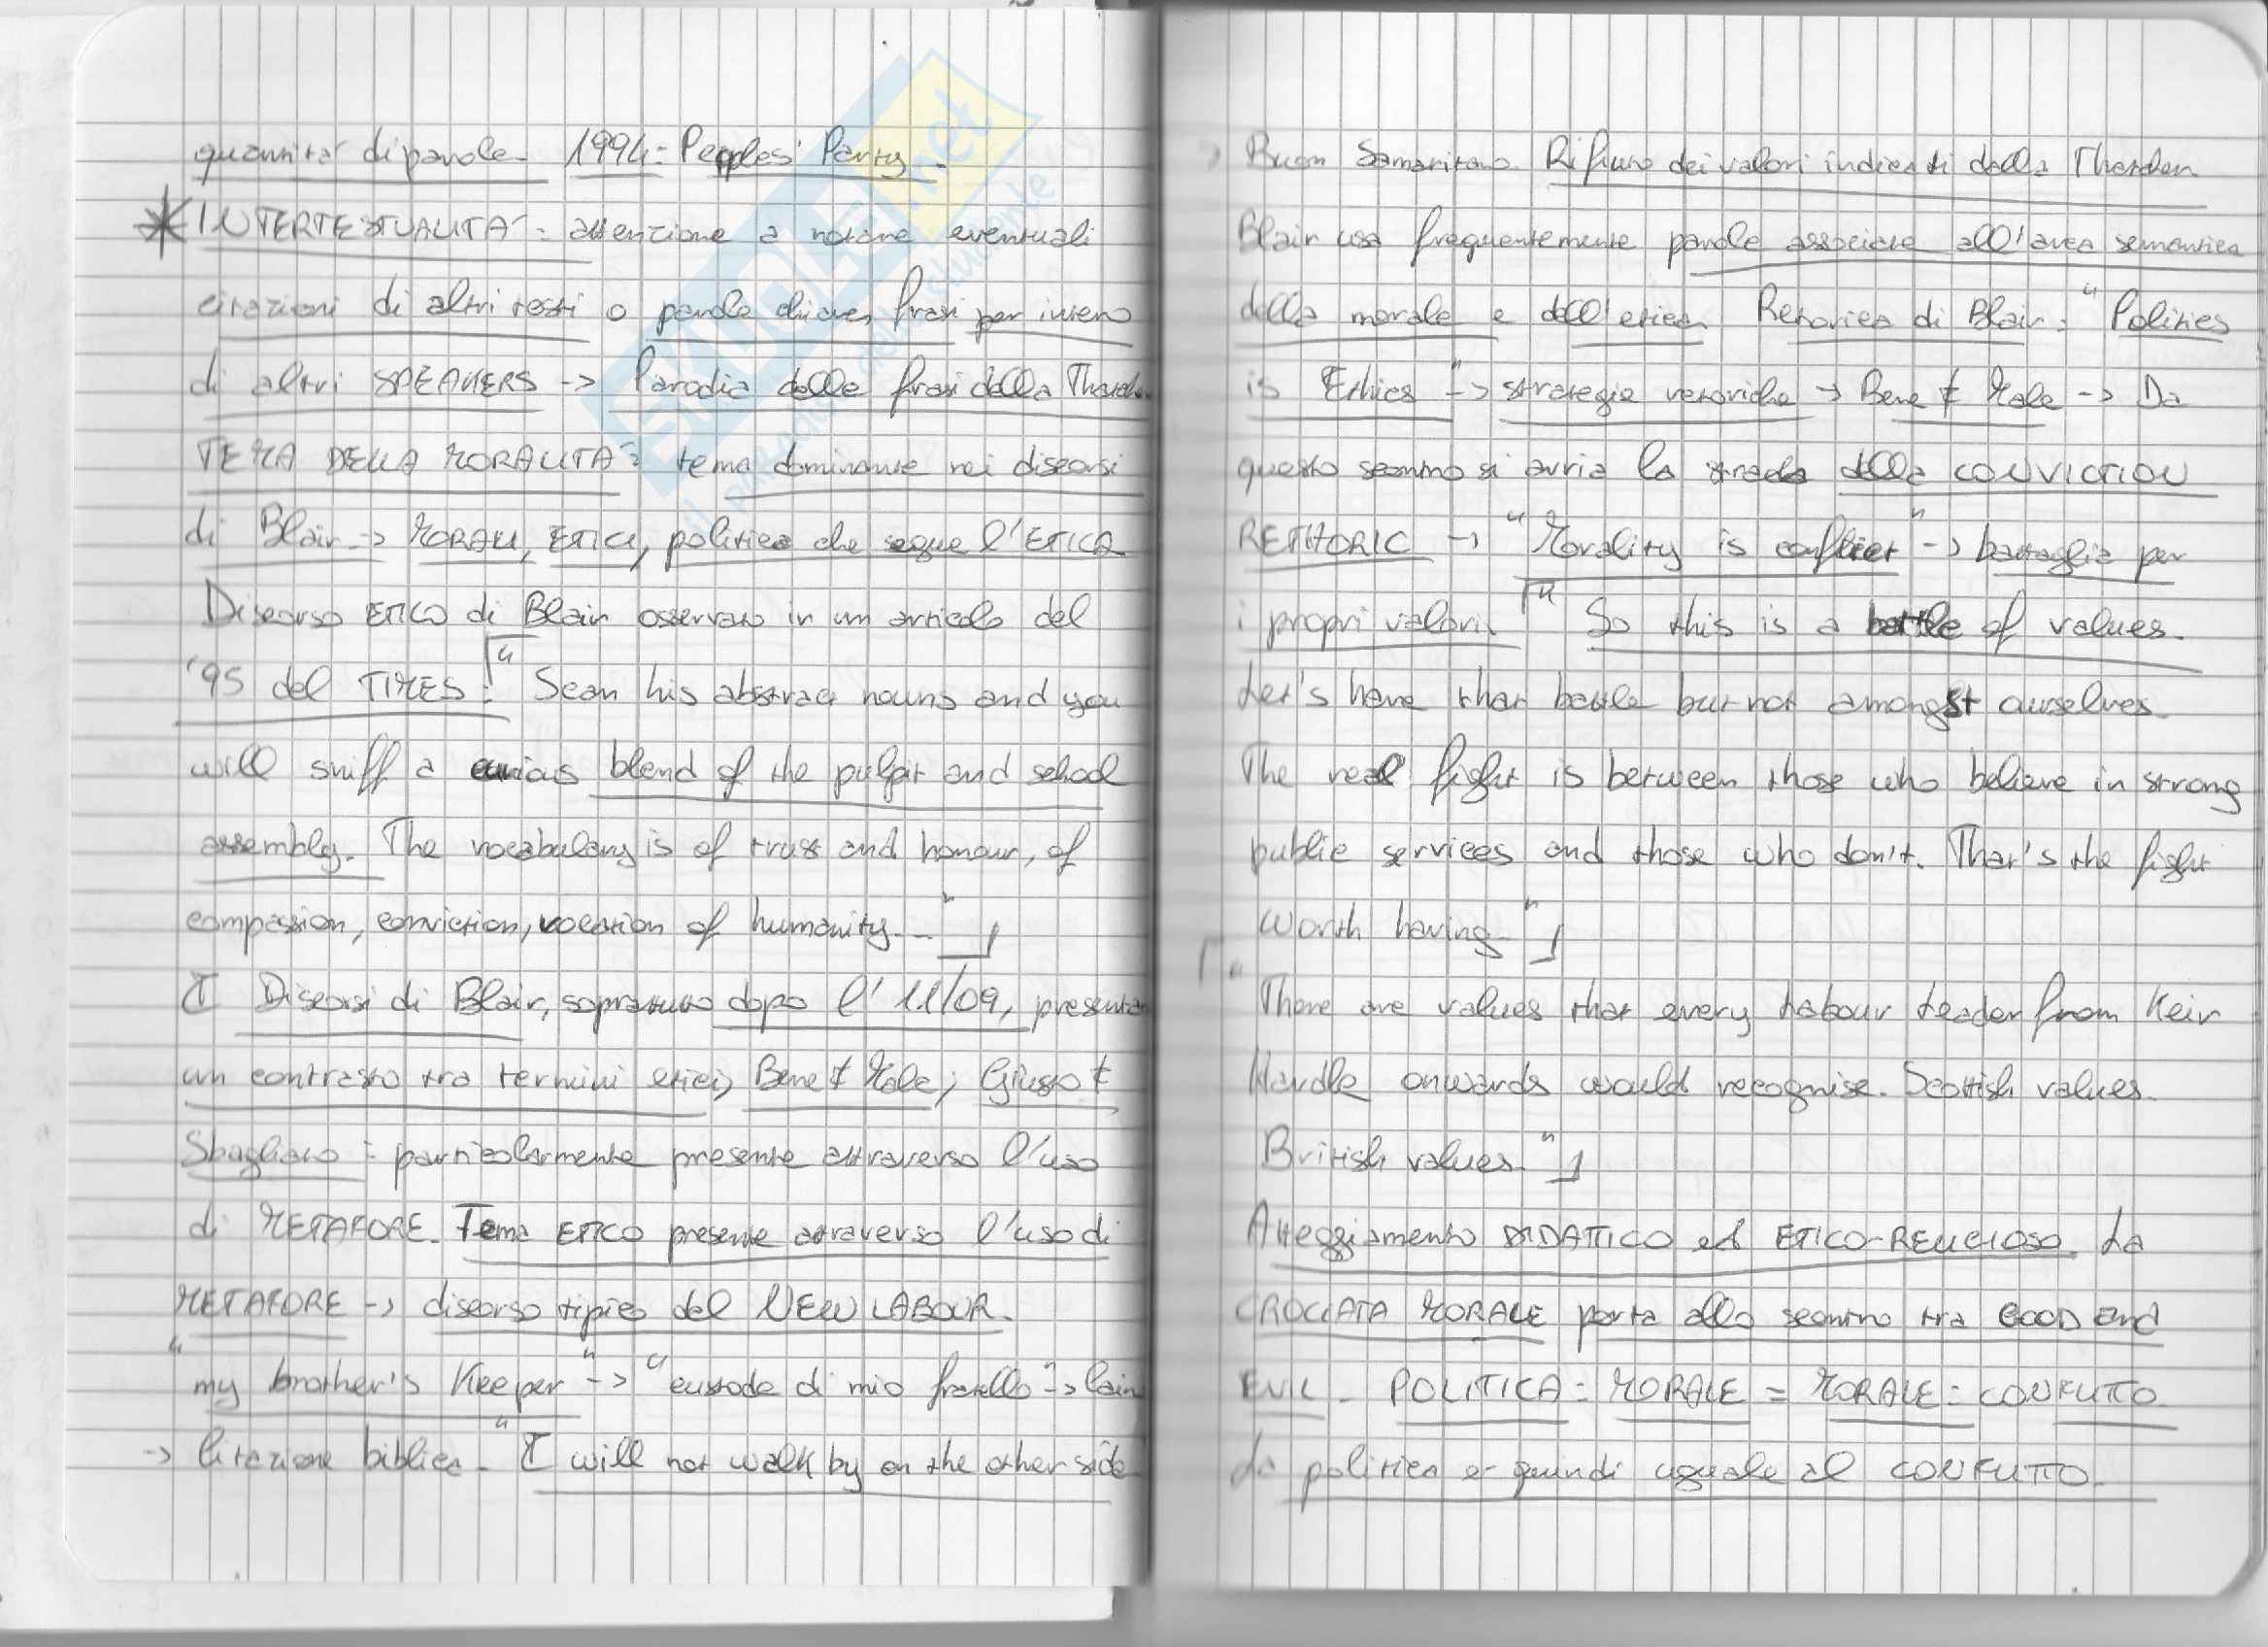 quantità di parole. 1994: Peoples' Party.
* INTERTESTUALITÀ: attenzione a notare eventuali
citazioni di altri testi o parole chiave, frasi per intero
di altri SPEAKERS -> Parodia delle frasi della
TEMA DELLA MORALITÀ: tema dominante nei discorsi
di Blair -> MORALI, ETICI, politica che segue l'ETICA
Discorso ETICO di Blair osservato in un articolo del
'95 del TIMES: "Scan his abstract nouns and you
will sniff a curious blend of the pulpit and school
assembly. The vocabulary is of trust and honour, of
compassion, conviction, vocation of humanity. "
I Discorsi di Blair, soprattutto dopo l'11/09, presenta
un contrasto tra termini etici, Bene ≠ Male; Giusto ≠
Sbagliato: particolarmente presente attraverso l'uso
di METAFORE. Tema ETICO presente attraverso l'uso di
METAFORE -> discorso tipico del NEW LABOUR.
"my brother's Keeper" -> "custode di mio fratello" -> Cain
-> Citazione biblica. "I will not walk by on the other side
Buon Samaritano. Rifiuto dei valori indicati dalla Thatcher
Blair usa frequentemente parole associate all'area semantica
della morale e dell'etica. Retorica di Blair: "Politics
is Ethics" -> strategie retoriche -> Bene ≠ Male -> Da
questo scontro si avvia la strada della CONVICTION
RETHORIC -> "Morality is conflict" -> battaglia per
i propri valori. "So this is a battle of values.
Let's have that battle but not amongst ourselves.
The real fight is between those who believe in strong
public services and those who don't. That's the fight
worth having"
"There are values that every Labour Leader from Keir
Hardle onwards would recognise. Scottish values.
British values."
Atteggiamento DIDATTICO ed ETICO-RELIGIOSO. La
CROCIATA MORALE porta allo scontro tra GOOD and
EVIL. POLITICA = MORALE = MORALE = CONFLITTO.
La politica e quindi uguale al CONFLITTO.